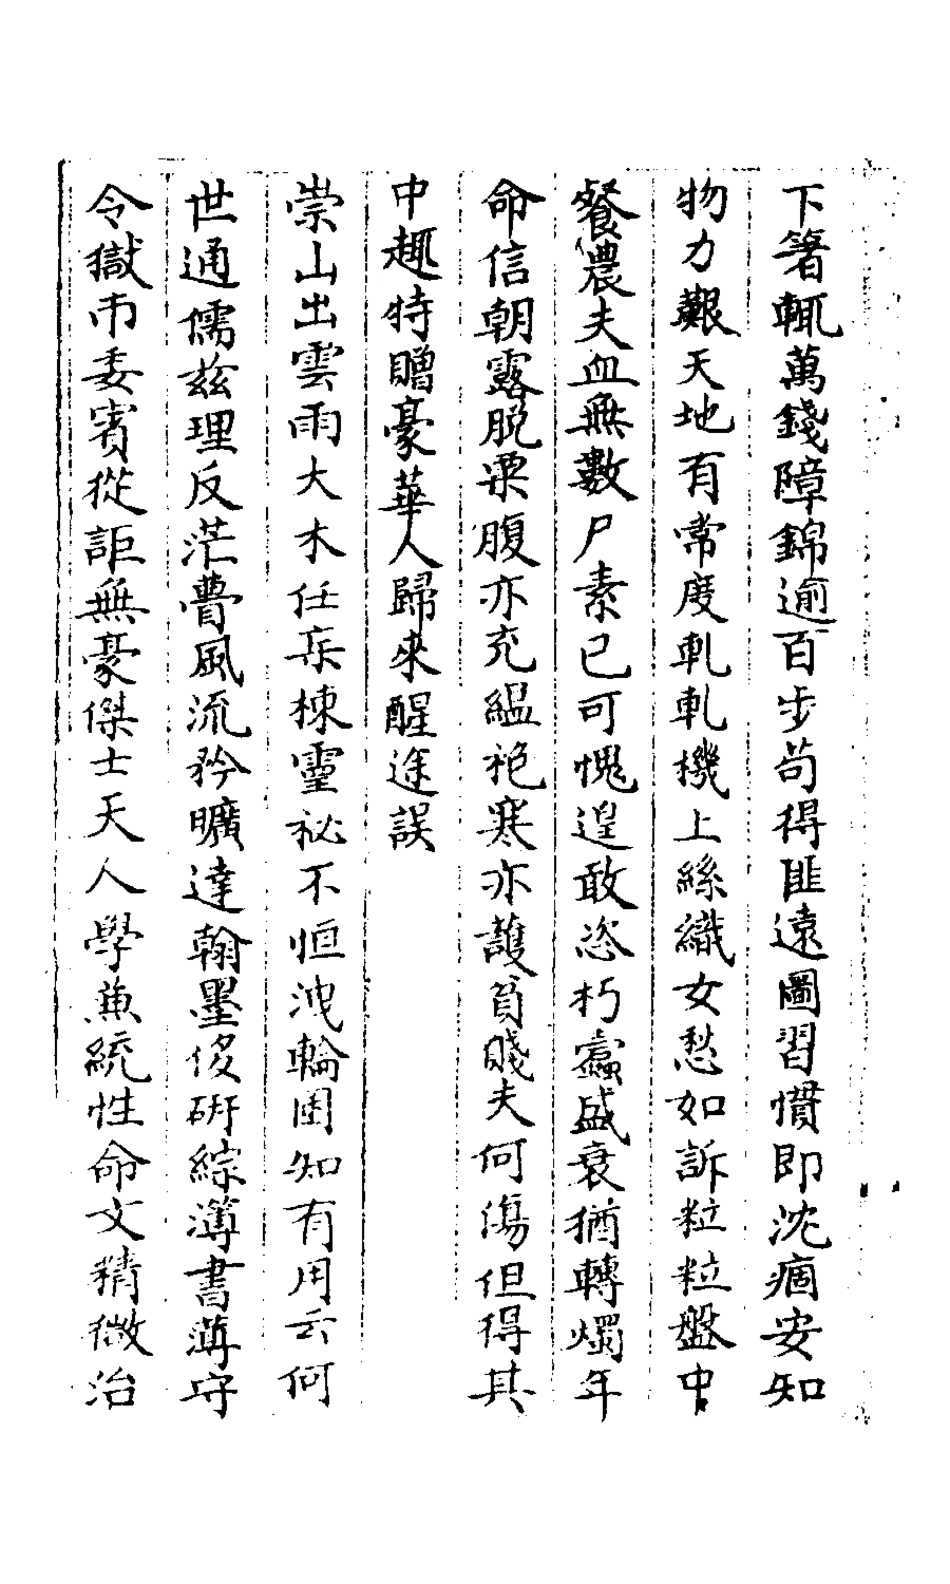 下箸輒萬錢障錦逾百步苟得匪遠圖習慣即沈痼安知
物力艱天地有常度軋軋機上絲織女愁如訴粒粒盤中
餐農夫血無數尸素已可愧遑敢恣朽蠹盛衰猶轉燭年
命信朝露脫粟腹亦充縕袍寒亦護貧賤夫何傷但得其
中趣特贈豪華人歸來醒迷誤
崇山出雲雨大木任宋棟靈祕不恒洩輪囷知有用云何
世通儒茲理反茫瞢風流矜曠達翰墨侈硏綜薄書薄守
令獄市委賓從詎無豪傑士天人學兼統性命文精微治